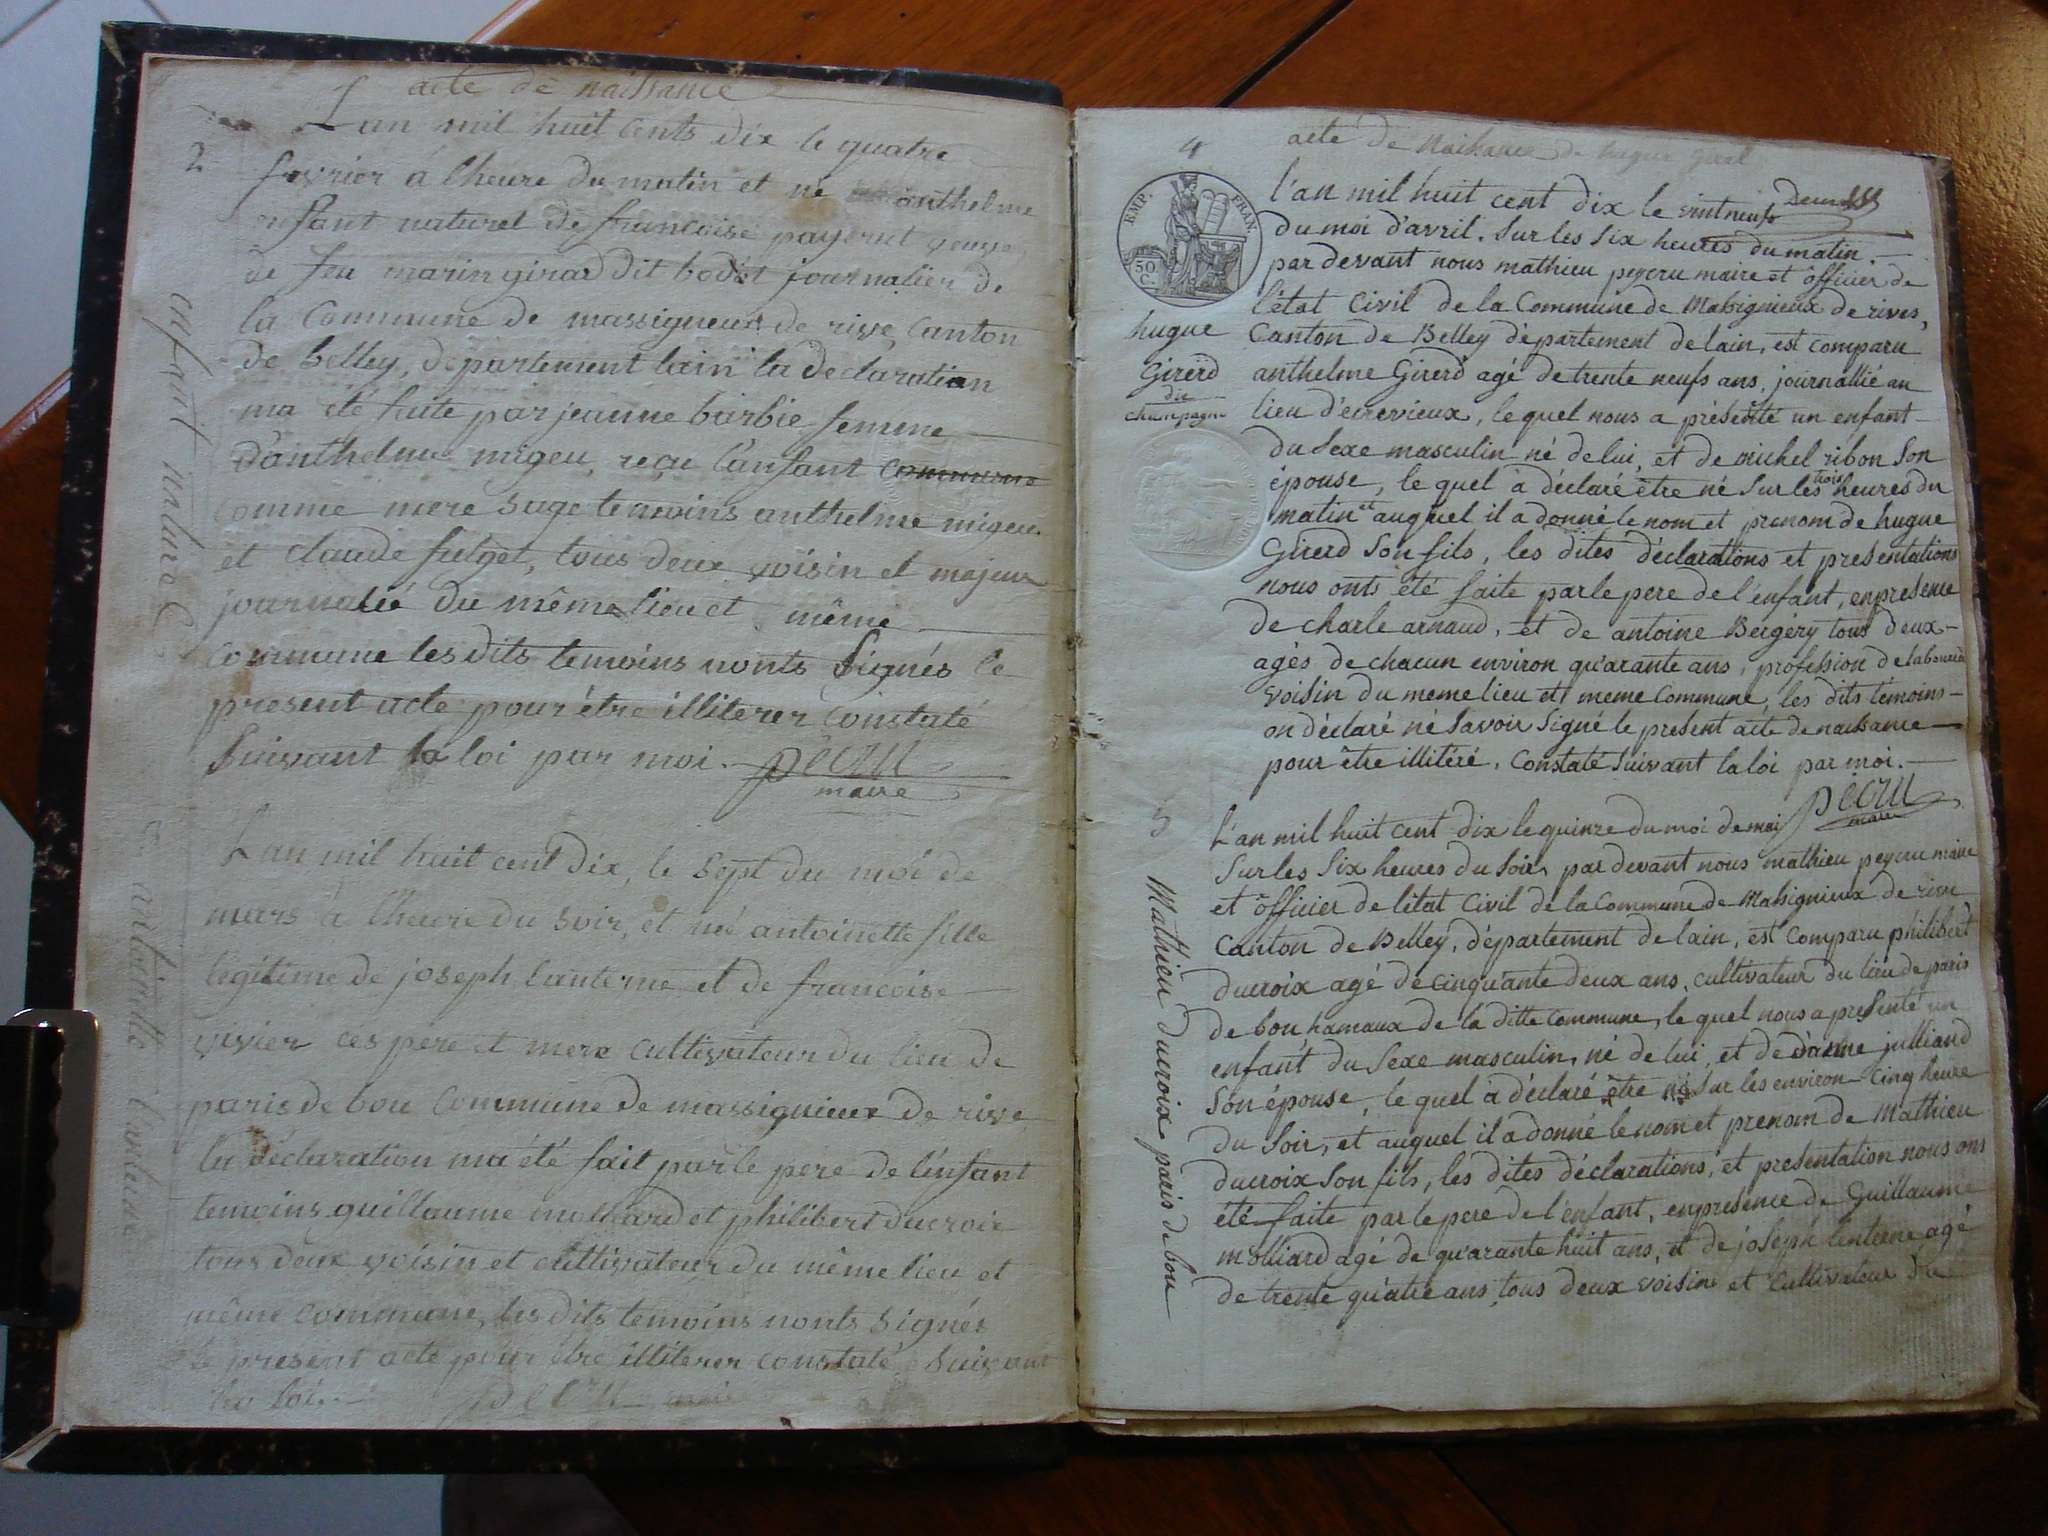 acte de naissance
L'an mil huit cents dix le quatre
2
fevrier a lheure du matin et né anthelme
enfant naturel de francoise payerut veuve
de feu marin girard dit bodet journalier de
la Commune de massigneux de rive Canton
de belley, departement lain la declaration
ma été faite par jeanne barbie femme
d'anthelme migeu, reçu l'anfant commune
comme mere sage temoins anthelme migeu
et claude fulget, tous deux voisin et majeur
journalié du même lieu et même
commune les dits temoins nonts signés le
present acte pour étre illiterer Constaté
Suivant la loi par moi. pécru
maire
enfant naturel
L'an mil huit cent dix, le sept du moi de
mars a lheure du soir, et né antoinette fille
légitime de joseph lanterne et de francoise
vivier ces pere et mere cultivateur du lieu de
paris de bou Commune de massignieux de rive
la déclaration ma été fait par le pere de l'enfant
temoins guillaume molliard et philibert ducroix
tous deux voisin et cultivateur du même lieu et
même commune, les dits temoins nonts signés
le present acte pour étre illiterer constaté Suivant
la loi. pécru maire
antoinette lanterne
4
acte de Naissance de hugue girerd
EMP. FRAN.
50 C.
l'an mil huit cent dix le vintneufs
du moi d'avril. Sur les six heures du matin.
par devant nous mathieu peycru maire et officier de
l'état Civil de la Commune de Massignieux de rives,
Canton de Belley département de lain, est comparu
anthelme Girerd agé de trente neufs ans, journallié au
lieu d'ecrevieux, le quel nous a présenté un enfant
du Sexe masculin né de lui, et de michel ribon Son
épouse, le quel à déclaré être né Sur les trois heures du
matin et auquel il a donné le nom et prenom de hugue
Girerd Son fils, les dites déclarations et presentations
nous onts été faite par le pere de l'enfant, enpresence
de charle arnaud, et de antoine Bergéry tous deux
agés de chacun environ qu'arante ans, profession de laboureur
voisin du meme lieu et meme Commune, les dits témoins
on déclaré né Savoir Signé le present acte de naissance
pour être illitéré, Constaté Suivant la loi par moi.
pécru
maire
hugue
Girerd
dit
champagne
5
L'an mil huit cent dix le quinze du moi de mai
Sur les Six heures du Soir, par devant nous mathieu peycru maire
et officier de l'état Civil de la Commune de Massignieux de rive
Canton de Belley, département de lain, est Comparu philibert
ducroix agé de cinquante deux ans, cultivateur du lieu de paris
de bou hamaux de la ditte Commune, le quel nous a presenté un
enfant du Sexe masculin, né de lui, et de julliand
Son épouse, le quel à déclaré être né Sur les environ Cinq heure
du Soir, et auquel il a donné le nom et prenom de Mathieu
ducroix Son fils, les dites déclarations, et presentation nous ons
été faite par le pere de l'enfant, enpresence de Guillaume
molliard agé de qu'arante huit ans, et de joseph lenterne agé
de trente quatre ans, tous deux voisin et Cultivateur du
Mathieu ducroix paris de bou